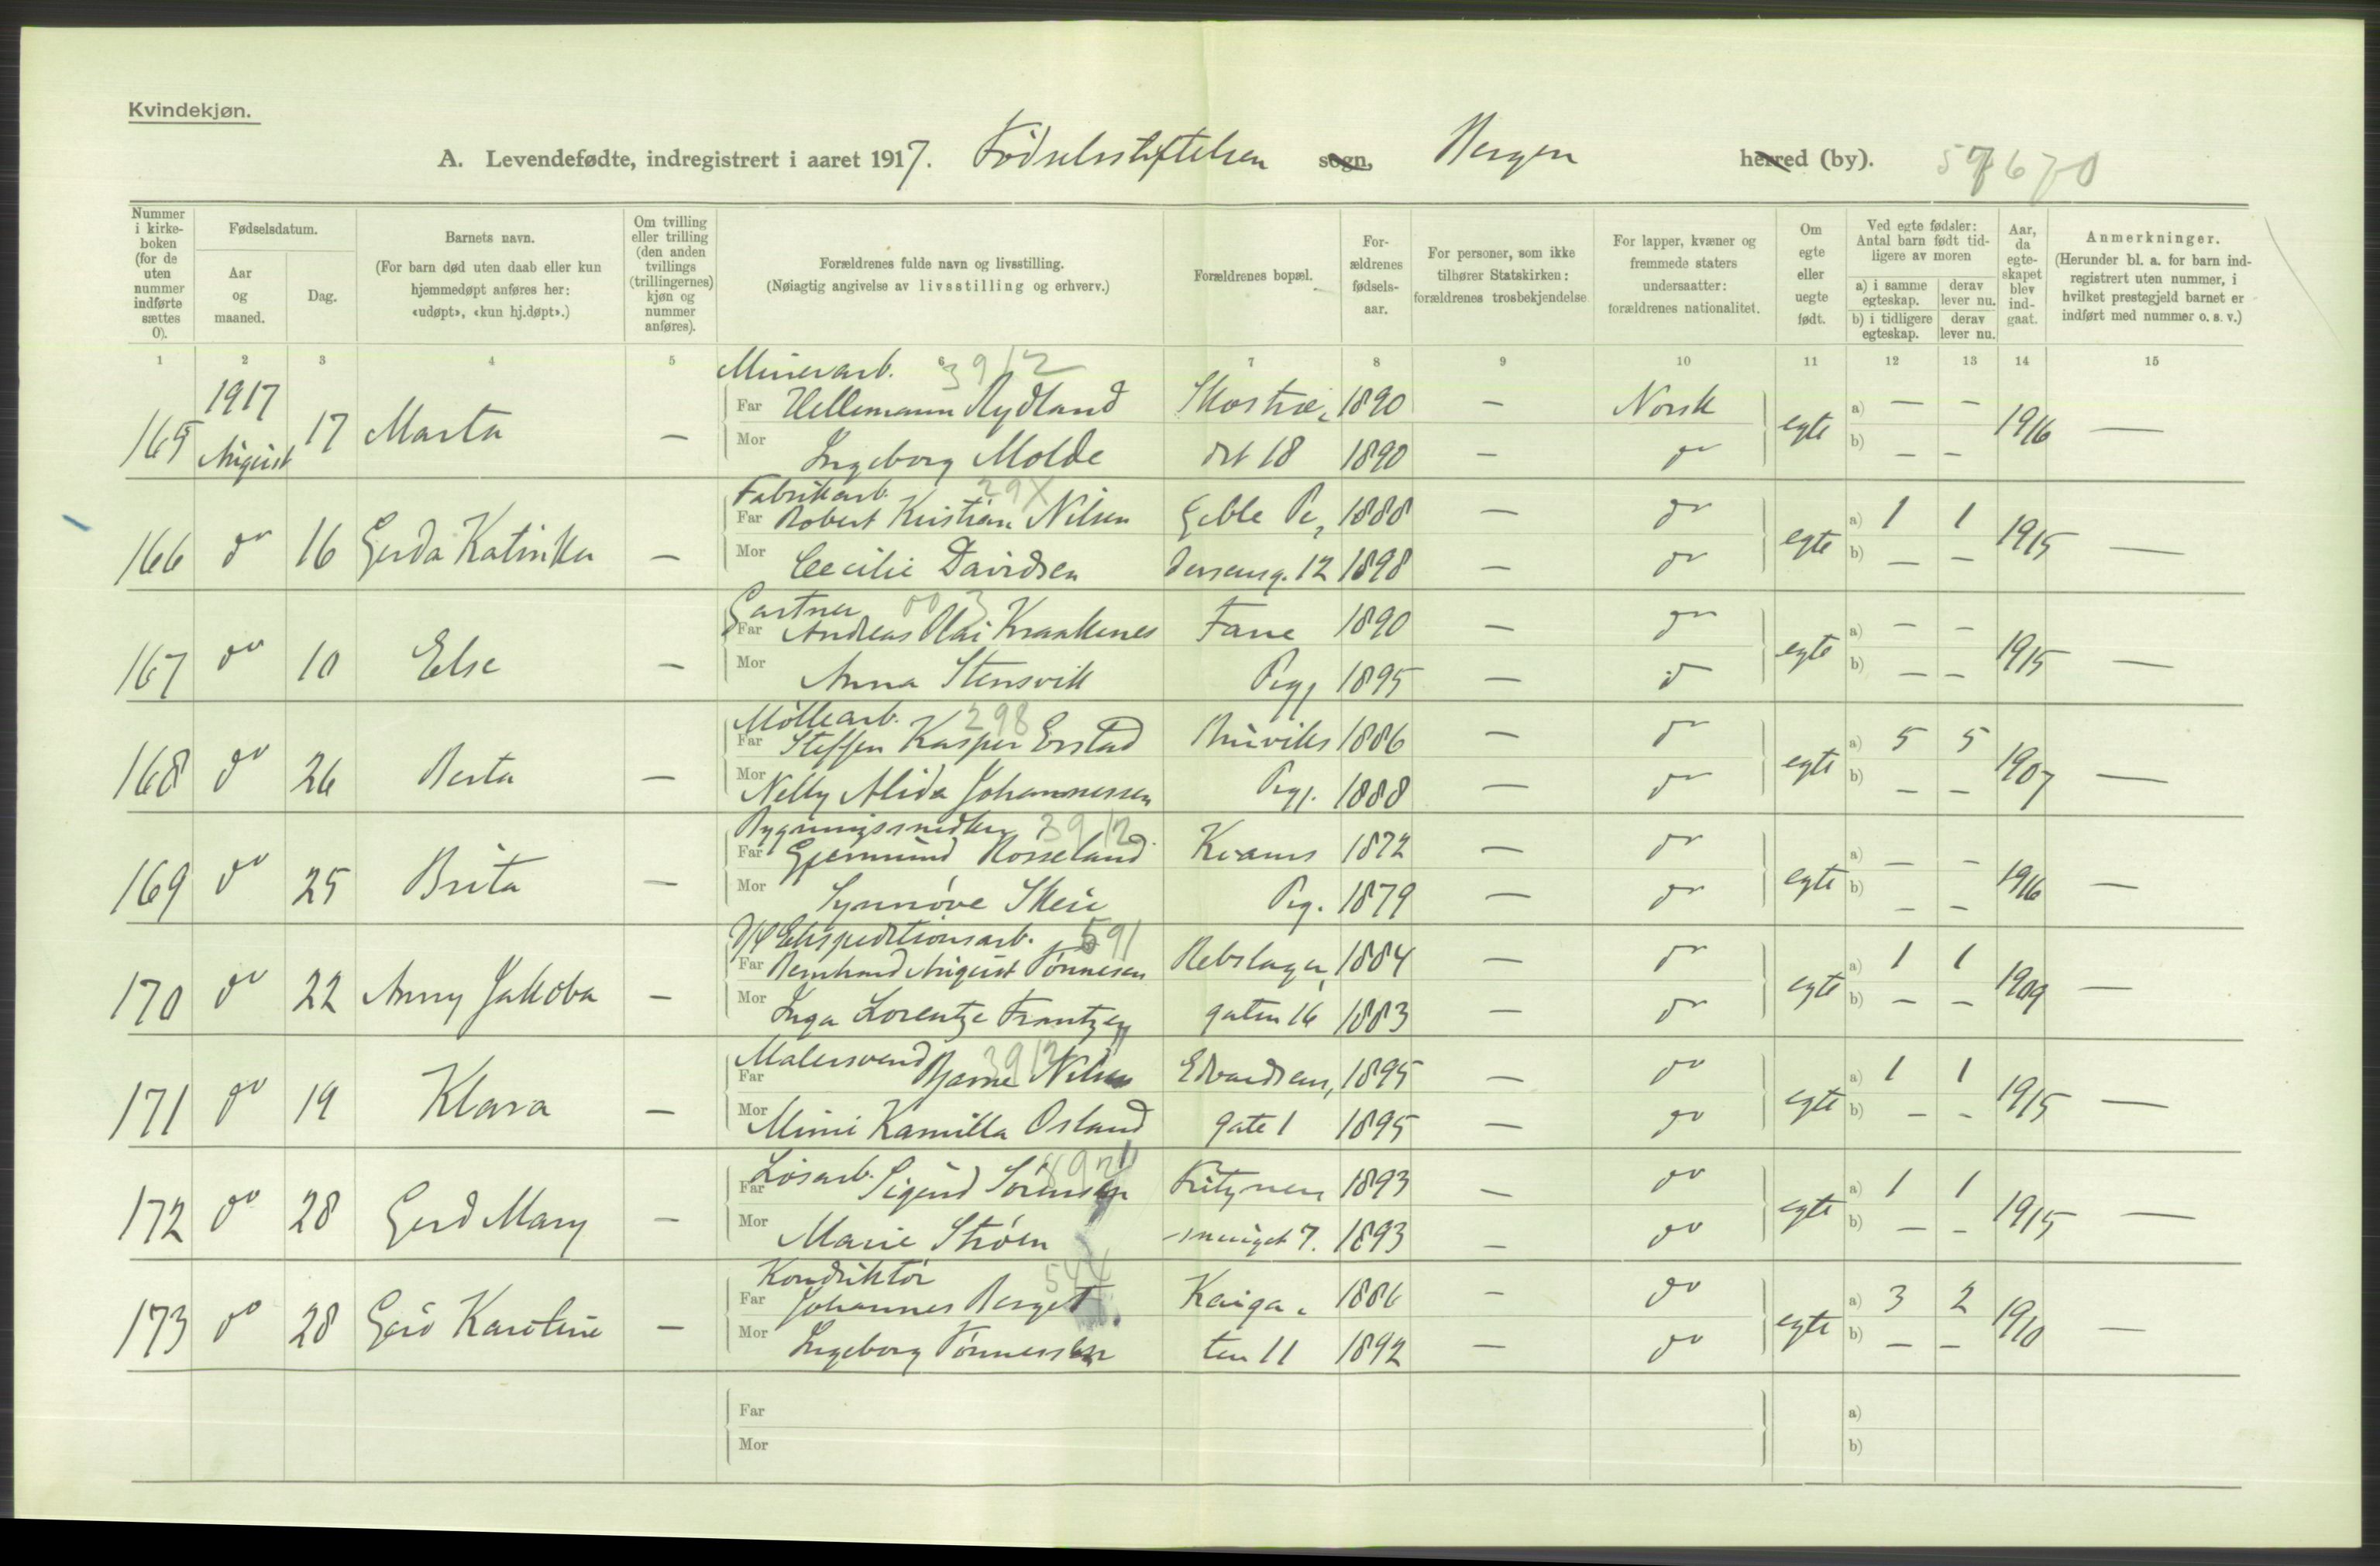 Kvindekjøn.
A. Levendefødte, indregistrert i aaret 1917. Fødselsstiftelsen sogn, Bergen herred (by). 57670
Nummer i kirkeboken (for de uten nummer indførte sættes 0).
Fødselsdatum.
Aar og maaned.
Dag.
Barnets navn.
(For barn død uten daab eller kun hjemmedøpt anføres her: «udøpt», «kun hj.døpt».)
Om tvilling eller trilling (den anden tvillings (trillingernes) kjøn og nummer anføres).
Forældrenes fulde navn og livsstilling.
(Nøiagtig angivelse av livsstilling og erhverv.)
Forældrenes bopæl.
For-ældrenes fødsels-aar.
For personer, som ikke tilhører Statskirken: forældrenes trosbekjendelse
For lapper, kvæner og fremmede staters undersaatter: forældrenes nationalitet.
Om egte eller uegte født.
Ved egte fødsler: Antal barn født tidligere av moren
a) i samme egteskap. derav lever nu.
b) i tidligere egteskap. derav lever nu.
Aar, da egteskapet blev indgaat.
Anmerkninger.
(Herunder bl. a. for barn indregistrert uten nummer, i hvilket prestegjeld barnet er indført med nummer o. s. v.)
1 2 3 4 5 6 7 8 9 10 11 12 13 14 15
Minerarb. 3912
165 1917 August 17 Marta —
Far Hellemann Rydland Skostræ, 1890 — Norsk egte a) — — 1916 —
Mor Ingeborg Molde det 18 1890 — do b) — —
Fabrikarb. 29X
166 do 16 Gerda Katinka —
Far Robert Kristian Nilsen Geble Pe, 1888 — do egte a) 1 1 1915 —
Mor Cecilie Davidsen dersensg. 12 1898 — do b) — —
Gartner 003
167 do 10 Else —
Far Andreas Olai Kraakenes Fane 1890 — do egte a) — — 1915 —
Mor Anna Stensvik Pgj 1895 — d b) — —
Møllearb. 298
168 do 26 Berta —
Far Steffen Kasper Erstad Bruviks 1886 — do egte a) 5 5 1907 —
Mor Nelly Alida Johannessen Pgj. 1888 — do b) — —
Bygningssnedker 3912
169 do 25 Brita —
Far Gjermund Rosseland Kvams 1872 — do egte a) — — 1916 —
Mor Synnøve Skeie Pg. 1879 — do b) — —
D/S Ekspeditionsarb. 591
170 do 22 Anny Jakoba —
Far Bernhard August Tønnesen Rebslager, 1884 — do egte a) 1 1 1909 —
Mor Inga Lorentze Frantzen gaten 16 1883 — do b) — —
Malersvend 3912
171 do 19 Klara —
Far Bjarne Nilsen Edvardsens, 1895 — do egte a) 1 1 1915 —
Mor Mimi Kamilla Osland gate 1 1895 — do b) — —
Løsarb.
172 do 28 Gerd Mary —
Far Sigurd Sørensen 1893 — do egte a) 1 1 1915 —
Mor Marie Strøm smuget 7. 1893 — do b) — —
Konduktør 544
173 do 28 Gerd Karoline —
Far Johannes Berget Kaiga, 1886 — do egte a) 3 2 1910 —
Mor Ingeborg Tønnessen ten 11 1892 — do b) — —
Far a)
Mor b)